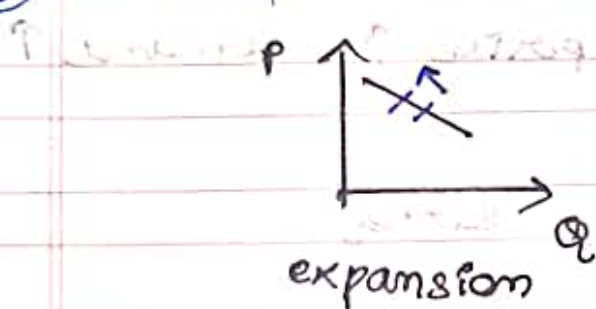 P
Q
expansion